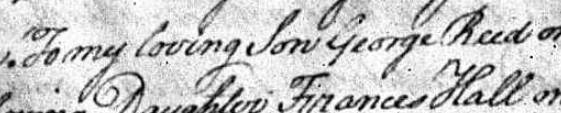 To my loving Son George Reed on
Daughter Frances Hall on